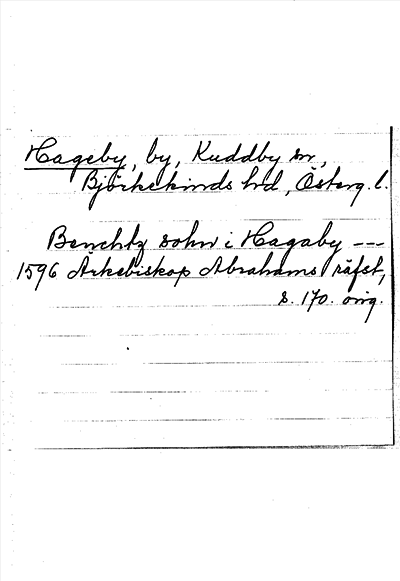 Hageby, by, Kuddby sn,
Björkekinds hd, Österg. l.
Benchtz sohn i Hagaby ---
1596 Ärkebiskop Abrahams räfst,
s. 170. orig.